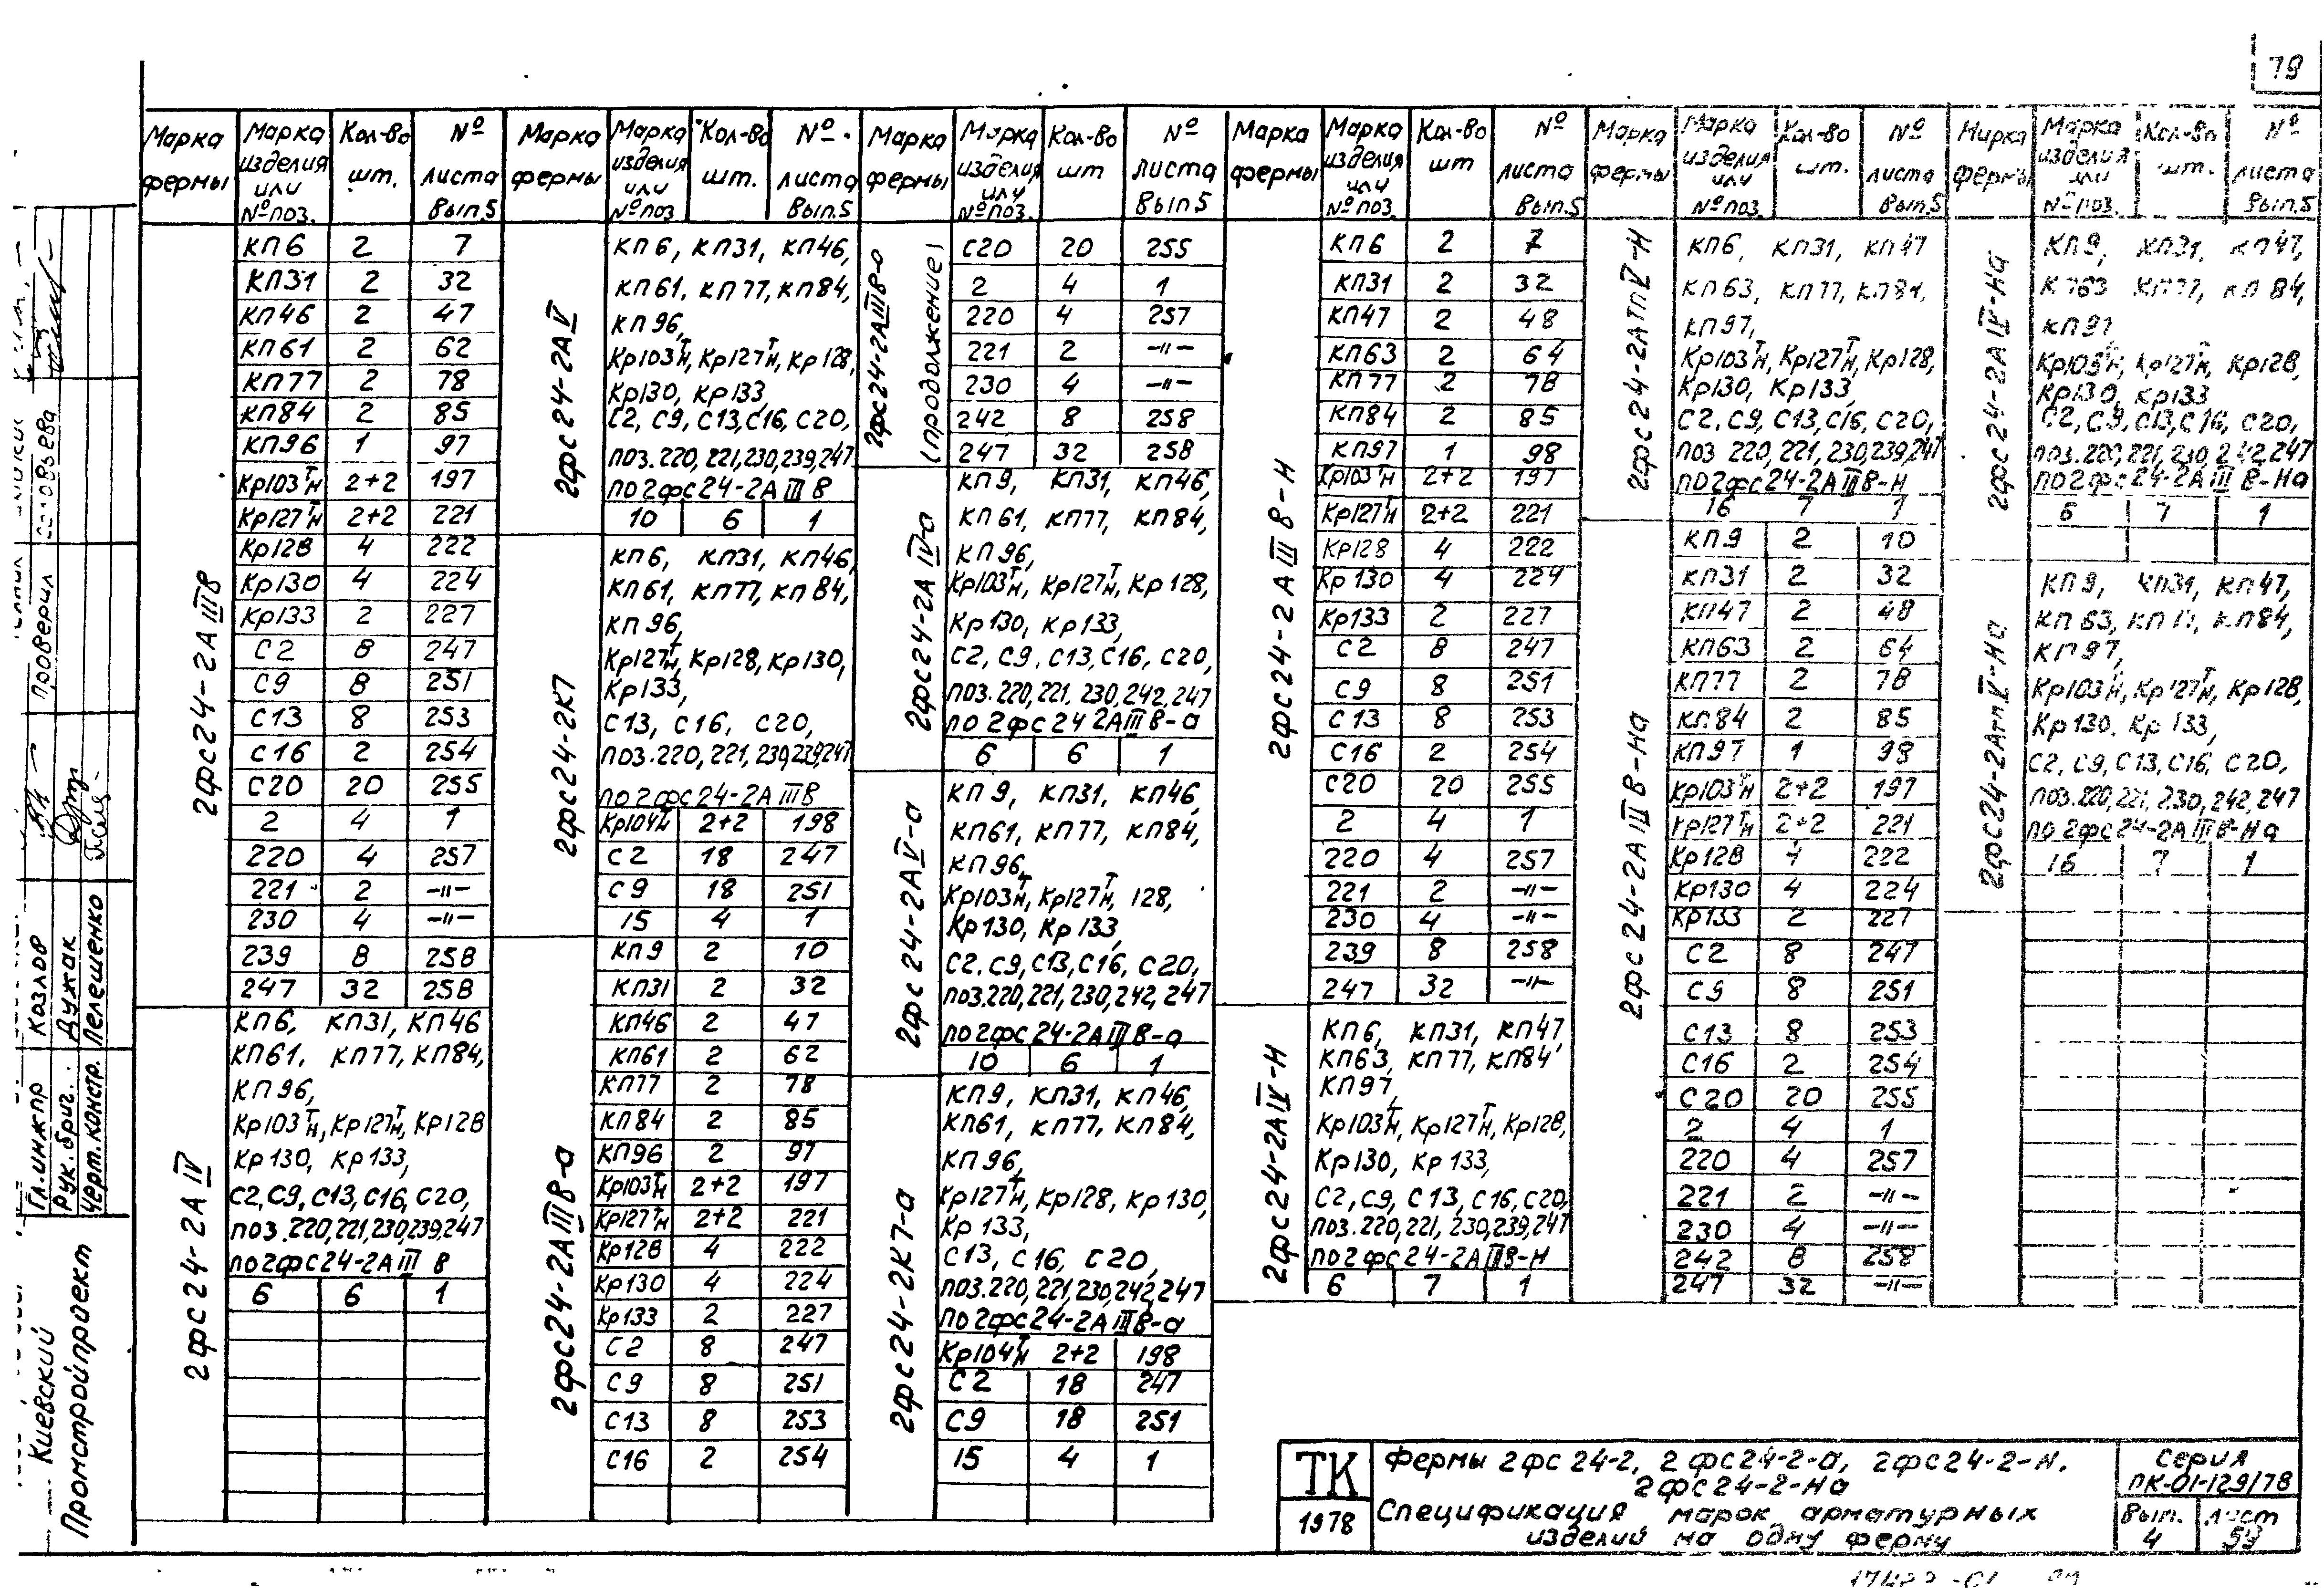 79
Марка фермы | Марка изделия или № поз. | Кол-во шт. | № листа Вып.5
2ФС24-2АIIIВ
КП6 2 7
КП31 2 32
КП46 2 47
КП61 2 62
КП77 2 78
КП84 2 85
КП96 1 97
Кр103Т/Н 2+2 197
Кр127Т/Н 2+2 221
Кр128 4 222
Кр130 4 224
Кр133 2 227
С2 8 247
С9 8 251
С13 8 253
С16 2 254
С20 20 255
2 4 1
220 4 257
221 2 -"-
230 4 -"-
239 8 258
247 32 258
2ФС24-2АIV
КП6, КП31, КП46
КП61, КП77, КП84,
КП96,
Кр103Т/Н, Кр127Т/Н, Кр128
Кр130, Кр133,
С2, С9, С13, С16, С20,
поз.220,221,230,239,247
по 2ФС24-2АIIIВ
6 6 1
Марка фермы | Марка изделия или № поз. | Кол-во шт. | № листа Вып.5
2ФС24-2АV
КП6, КП31, КП46,
КП61, КП77, КП84,
КП96,
Кр103Т/Н, Кр127Т/Н, Кр128,
Кр130, Кр133,
С2, С9, С13, С16, С20,
поз.220,221,230,239,247
по 2ФС24-2АIIIВ
10 6 1
2ФС24-2К7
КП6, КП31, КП46,
КП61, КП77, КП84,
КП96,
Кр127Т/Н, Кр128, Кр130,
Кр133,
С13, С16, С20,
поз.220,221,230,239,247
по 2ФС24-2АIIIВ
Кр104Т/Н 2+2 198
С2 18 247
С9 18 251
15 4 1
2ФС24-2АIIIВ-а
КП9 2 10
КП31 2 32
КП46 2 47
КП61 2 62
КП77 2 78
КП84 2 85
КП96 2 97
Кр103Т/Н 2+2 197
Кр127Т/Н 2+2 221
Кр128 4 222
Кр130 4 224
Кр133 2 227
С2 8 247
С9 8 251
С13 8 253
С16 2 254
Марка фермы | Марка изделия или № поз. | Кол-во шт | № листа Вып5
2ФС24-2АIIIВ-а (продолжение)
С20 20 255
2 4 1
220 4 257
221 2 -"-
230 4 -"-
242 8 258
247 32 258
2ФС24-2АIVа
КП9, КП31, КП46,
КП61, КП77, КП84,
КП96,
Кр103Т/Н, Кр127Т/Н, Кр128,
Кр130, Кр133,
С2, С9, С13, С16, С20,
поз.220,221,230,242,247
по 2ФС24 2АIIIВ-а
6 6 1
2ФС24-2АV-а
КП9, КП31, КП46,
КП61, КП77, КП84,
КП96,
Кр103Т/Н, Кр127Т/Н, 128,
Кр130, Кр133,
С2, С9, С13, С16, С20,
поз.220,221,230,242,247
по 2ФС24-2АIIIВ-а
10 6 1
2ФС24-2К7-а
КП9, КП31, КП46,
КП61, КП77, КП84,
КП96,
Кр127Т/Н, Кр128, Кр130,
Кр133,
С13, С16, С20,
поз.220,221,230,242,247
по 2ФС24-2АIIIВ-а
Кр104Т/Н 2+2 198
С2 18 247
С9 18 251
15 4 1
Марка фермы | Марка изделия или № поз. | Кол-во шт | № листа Вып.5
2ФС24-2АIIIВ-Н
КП6 2 7
КП31 2 32
КП47 2 48
КП63 2 64
КП77 2 78
КП84 2 85
КП97 1 98
Кр103Т/Н 2+2 197
Кр127Т/Н 2+2 221
Кр128 4 222
Кр130 4 224
Кр133 2 227
С2 8 247
С9 8 251
С13 8 253
С16 2 254
С20 20 255
2 4 1
220 4 257
221 2 -"-
230 4 -"-
239 8 258
247 32 -"-
2ФС24-2АIV-Н
КП6, КП31, КП47,
КП63, КП77, КП84,
КП97,
Кр103Т/Н, Кр127Т/Н, Кр128,
Кр130, Кр133,
С2, С9, С13, С16, С20,
поз.220,221,230,239,247
по 2ФС24-2АIIIВ-Н
6 7 1
Марка фермы | Марка изделия или № поз | Кол-во шт. | № листа Вып.5
2ФС24-2АТПV-Н
КП6, КП31, КП47
КП63, КП77, КП84,
КП97,
Кр103Т/Н, Кр127Т/Н, Кр128,
Кр130, Кр133,
С2, С9, С13, С16, С20,
поз 220,221,230,239,247
по 2ФС24-2АIIIВ-Н
16 7 1
2ФС24-2АIIIВ-На
КП9 2 10
КП31 2 32
КП47 2 48
КП63 2 64
КП77 2 78
КП84 2 85
КП97 1 98
Кр103Т/Н 2+2 197
Кр127Т/Н 2+2 221
Кр128 4 222
Кр130 4 224
Кр133 2 227
С2 8 247
С9 8 251
С13 8 253
С16 2 254
С20 20 255
2 4 1
220 4 257
221 2 -"-
230 4 -"-
242 8 258
247 32 -"-
Марка фермы | Марка изделия или № поз. | Кол-во шт. | № листа Вып.5
2ФС24-2АIV-На
КП9, КП31, КП47,
КП63 КП77, КП84,
КП97,
Кр103Т/Н, Кр127Т/Н, Кр128,
Кр130, Кр133
С2, С9, С13, С16, С20,
поз.220,221,230,242,247
по 2ФС24-2АIIIВ-На
6 7 1
2ФС24-2АтпV-На
КП9, КП31, КП47,
КП63, КП77, КП84,
КП97,
Кр103Т/Н, Кр127Т/Н, Кр128,
Кр130, Кр133,
С2, С9, С13, С16, С20,
поз.220,221,230,242,247
по 2ФС24-2АIIIВ-На
16 7 1
Киевский
Промстройпроект
Гл.инж.пр Козлов
Рук.бриг. Дужак
Черт.констр. Пелешенко
Проверил Соловьева
ТК
1978
Фермы 2ФС24-2, 2ФС24-2-а, 2ФС24-2-Н,
2ФС24-2-На
Спецификация марок арматурных
изделий на одну ферму
Серия
ПК-01-129/78
Вып. 4
лист 59